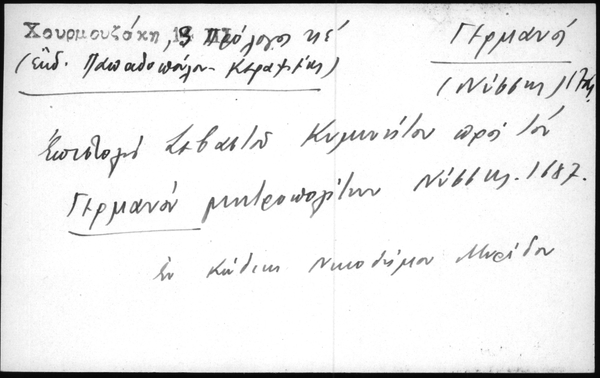 Χουρμουζάκη, 13 Πρόλογος κέ
(Εὐδ. Παπαδοπούλου - Κεραμέως)
Γερμανός
(Νύσσης) 17ος
Ἐπιστολὴ Σεβαστοῦ Κυμινήτου πρὸς τὸν
Γερμανὸν μητροπολίτην Νύσσης. 1687.
Ἐν Κώδικι Νικοδήμου Μυρίδου